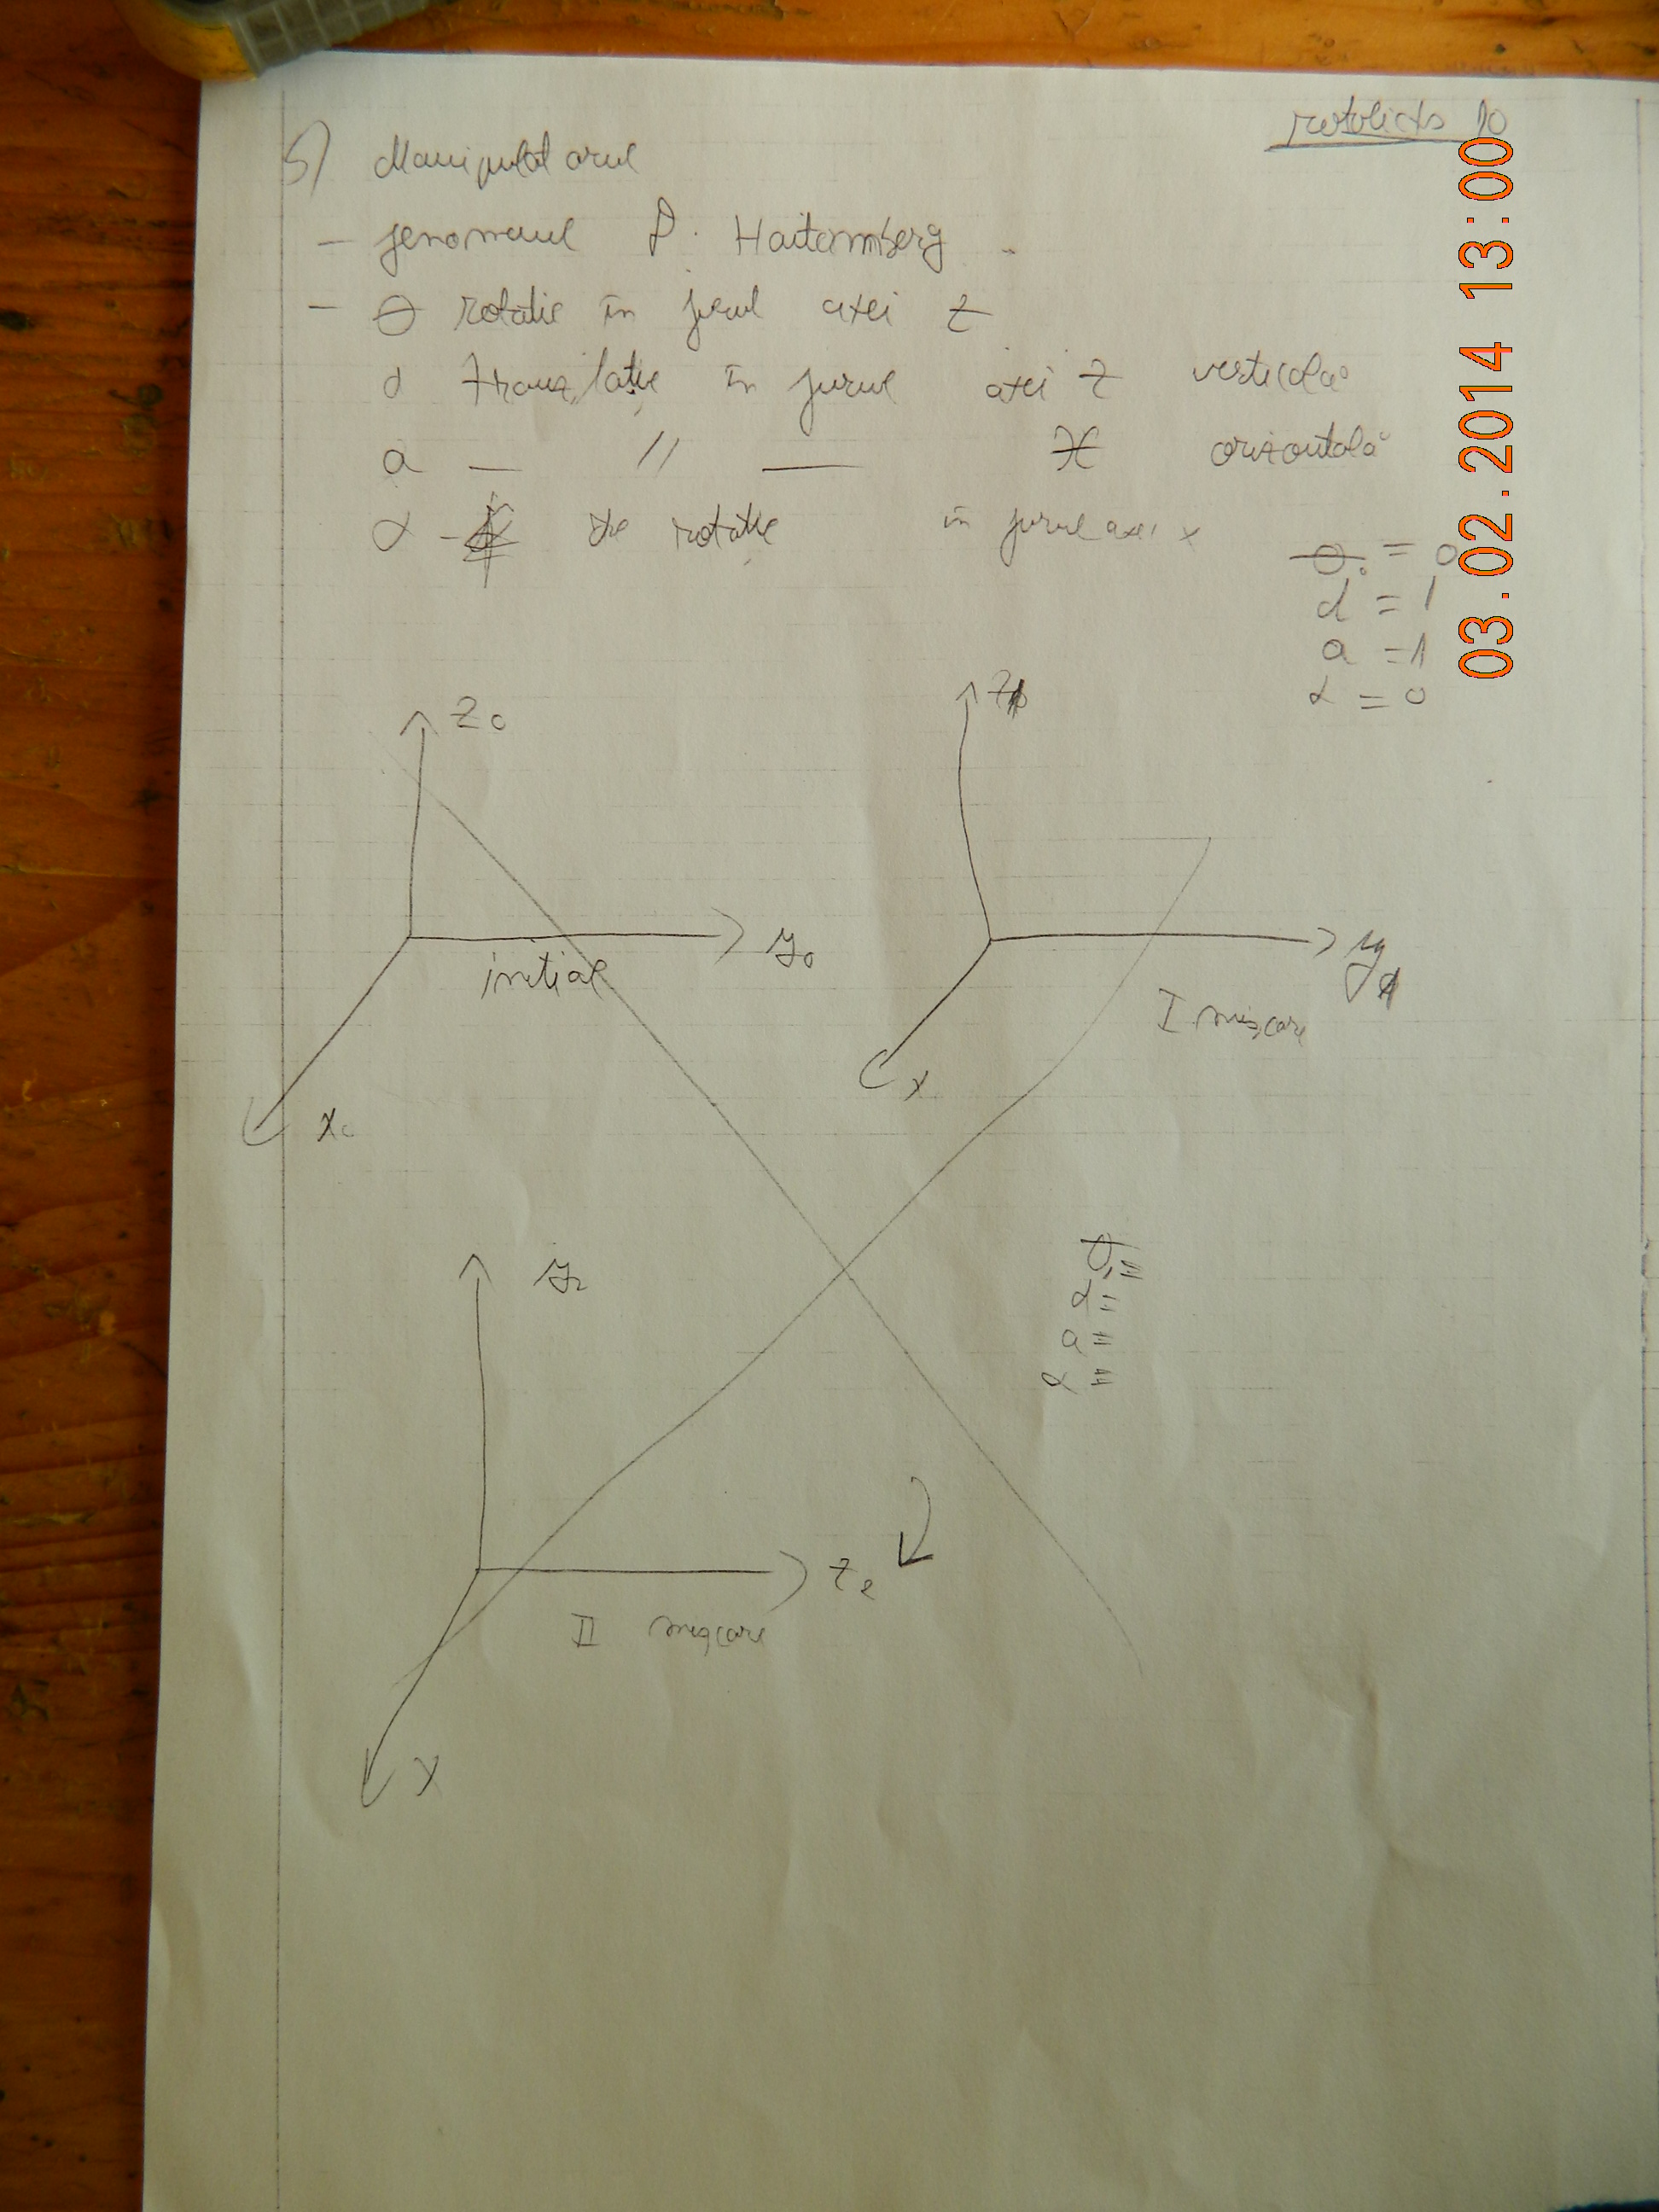 10
5) Manipulatorul
- fenomenul D. Haitamberg
- θ rotatie în jurul axei z
d tranzlație în jurul axei z verticală
a — // — x orizontală
α - de rotație în jurul axei x
θ = 0
d = 1
a = 1
α = 0
z₀
y₀
initial
x₀
z
y
I mișcare
x
y₂
θ =
d =
a =
α =
z₂
II mișcare
x
03.02.2014 13:00